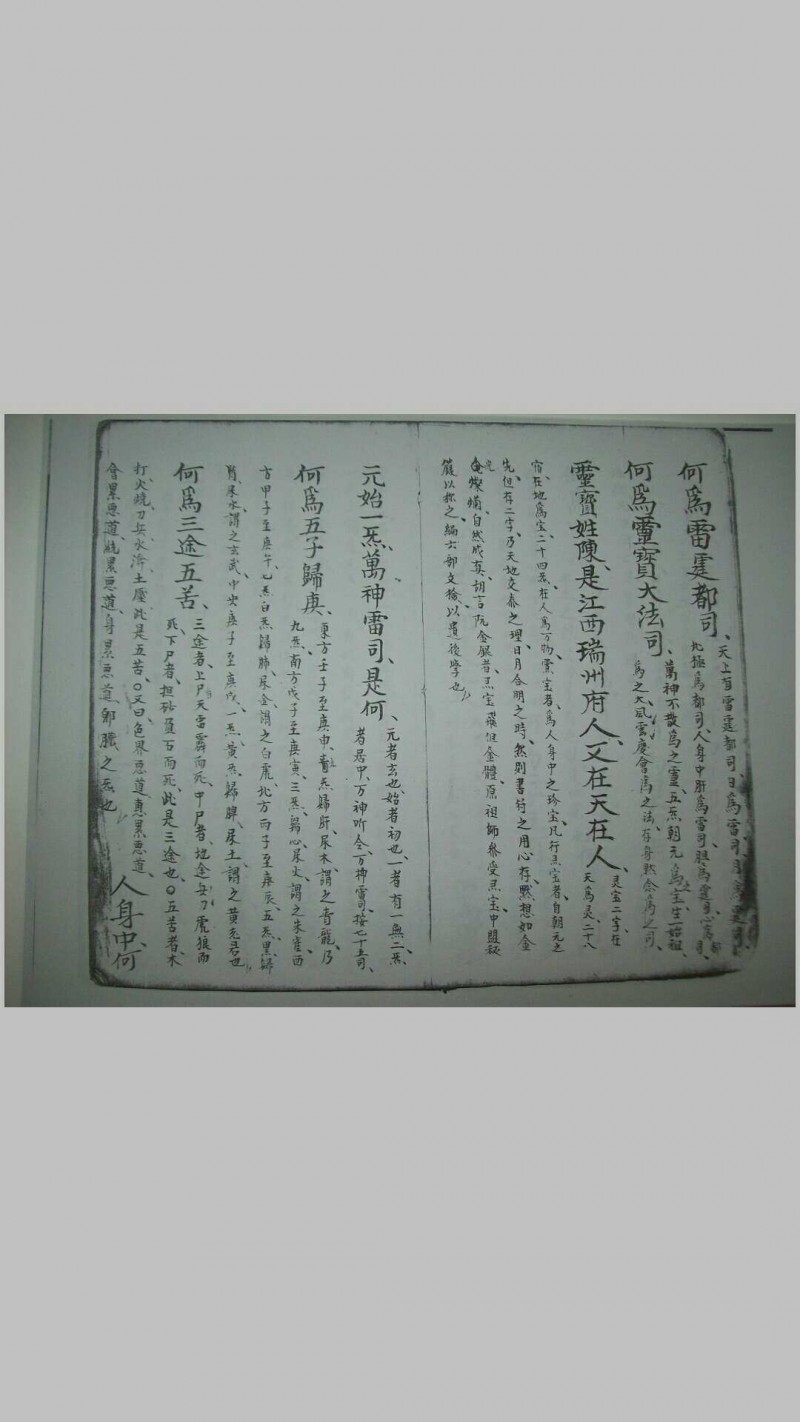 何爲雷霆都司、天上有雷霆都司日爲雷司
北極爲都司、人身中肝爲雷司、胆爲霆司、心爲
何爲靈寶大法司、萬神不散爲之靈、五炁朝元爲宝、生一始祖、
爲之大、風雲慶會爲之法、存身默念爲之司、
靈寶姓陳、是江西瑞州府人、又在天在人、灵宝二字、在
天爲灵、二十八
宿、在地爲宝、二十四炁、在人爲万物、灵宝者、爲人身中之珍宝、凡行灵宝者、自朝元之
先、但存二字、乃天地交泰之理、日月合明之時、然則書符之用心存默想如金
光燦爛、自然成真、
灵宝中盟
籙以称之、編六部文檢、以遺後學也、
元始一炁萬神雷司、是何、元者玄也、始者初也、一者有一無二、炁
者居甲、万神听令、万神雷司、按七十五司、
何爲五子歸庚、東方壬子至庚申、青炁歸肝、尿木、謂之青龍、乃
九炁、南方戊子至庚寅、三炁歸心、尿火、謂之朱雀、西
方甲子至庚午、七炁白炁歸肺、尿金、謂之白虎、北方丙子至庚辰、五炁黑歸
腎、尿水、謂之玄武、中央庚子至庚戌、一炁黃炁、歸脾、尿土、謂之黃老君也
何爲三途五苦、三途者、上尸天雷霹而死、中尸者、地途兵刀虎狼而
死、下尸者、担砂負石而死、此是三途也、〇五苦者、木
打、火燒、刀兵、水渰、土壓、此是五苦、〇又曰、色累惡道、恚累惡道、
會累惡道、痴累惡道、身累惡道、之炁也、人身中、何